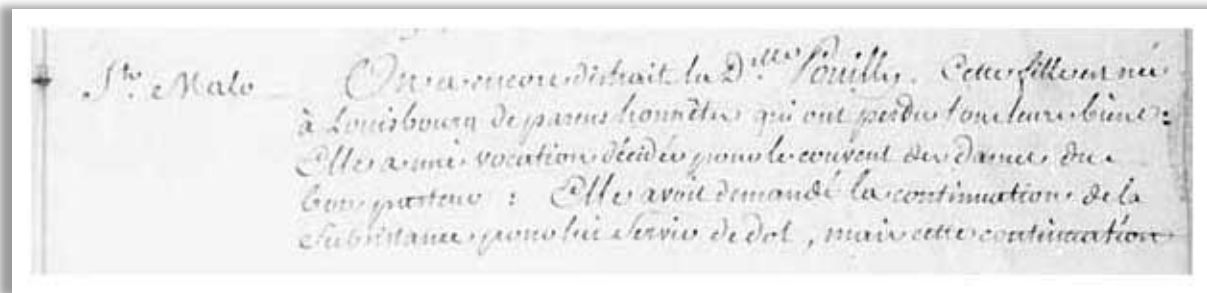 St. Malo On a encore distrait la Dlle Pouilly. Cette fille est née
à Louisbourg de parens honnêtes qui ont perdu tous leurs biens :
Elle a une vocation décidée pour le couvent des Dames du
bon pasteur : Elle avoit demandé la continuation de la
subsistance pour lui servir de dot, mais cette continuation